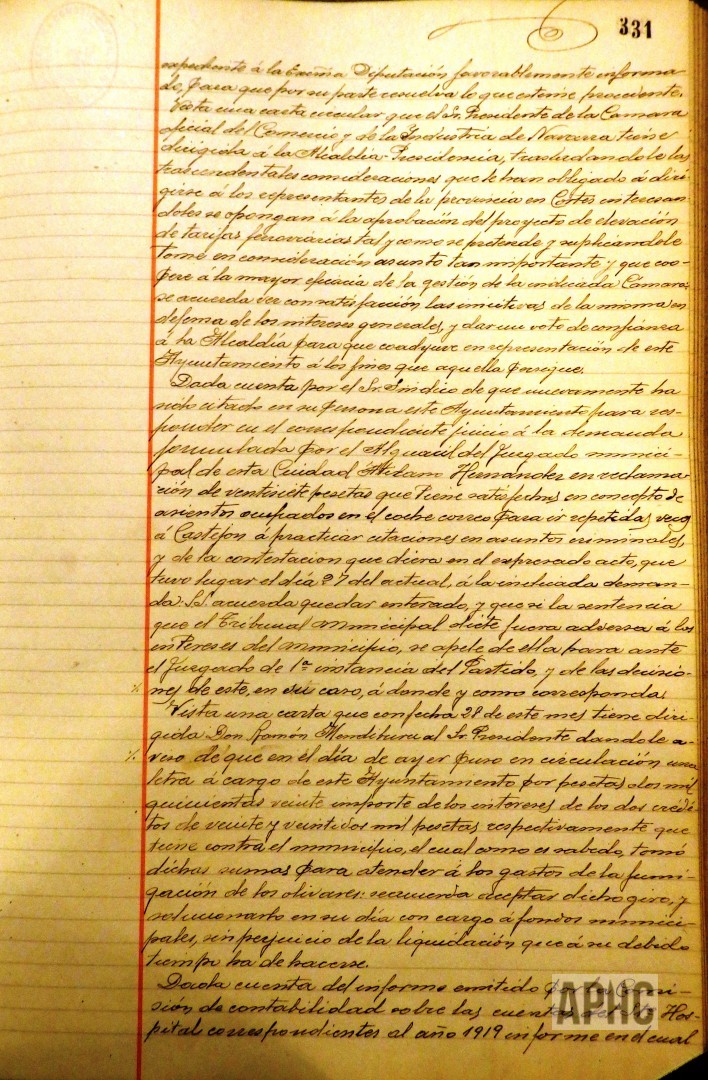 331
expediente á la Excma Diputación favorablemente informa
do, para que por su parte resuelva lo que estime procedente.
Vista una carta circular que el Sr. Presidente de la Cámara
oficial del Comercio y de la Industria de Navarra tiene
dirigida á la Alcaldia Presidencia, trasladandole las
trascendentales consideraciones que le han obligado á diri-
girse á los representantes de la provincia en Cortes interesan
doles se opongan á la aprobación del proyecto de elevación
de tarifas ferroviarias tal y como se pretende y suplicandole
tome en consideración asunto tan importante y que coo-
pere á la mayor eficacia de la gestión de la indicada Cámara;
se acuerda ver con satisfacción las iniciativas de la misma en
defensa de los intereses generales, y dar un voto de confianza
á la Alcaldía para que coadyuve en representación de este
Ayuntamiento á los fines que aquella persigue.
Dada cuenta por el Sr. Sindico de que nuevamente ha
sido citado en su persona este Ayuntamiento para res-
ponder en el correspondiente juicio á la demanda
formulada por el Alguacil del Juzgado munici-
pal de esta Ciudad Hernández en reclama-
ción de ventisiete pesetas que tiene satisfechas en concepto de
asientos ocupados en el coche correo para ir repetidas veces
á Castejon á practicar citaciones en asuntos criminales,
y de la contestacion que diera en el expresado acto, que
tuvo lugar el día 27 del actual, á la indicada deman-
da: S.S. acuerda quedar enterado, y que si la sentencia
que el Tribunal municipal dicte fuera adversa á los
intereses del municipio, se apele de ella para ante
el Juzgado de 1ª instancia del Partido, y de las decisio-
nes de este, en su caso, á donde y como corresponda.
Vista una carta que con fecha 28 de este mes tiene diri-
gida Don Ramón Mendiburu al Sr. Presidente dandole a-
viso de que en el día de ayer puso en circulación una
letra á cargo de este Ayuntamiento por pesetas dos mil
quinientas veinte importe de los intereses de los dos crédi
tos de veinte y veintidos mil pesetas respectivamente que
tiene contra el municipio, el cual como es sabido, tomó
dichas sumas para atender á los gastos de la fumi-
gación de los olivares: se acuerda aceptar dicho giro, y
solucionarlo en su día con cargo á fondos munici-
pales, sin perjuicio de la liquidación que á su debido
tiempo ha de hacerse.
Dada cuenta del informe emitido por la Comi-
sión de contabilidad sobre las cuentas del Sto Hos-
pital correspondientes al año 1919 informe en el cual
APHC